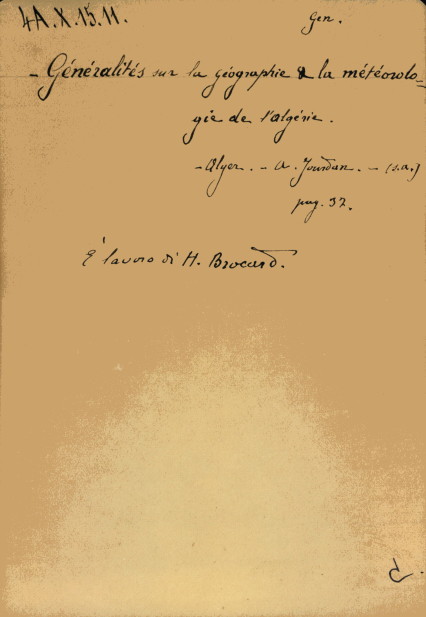 4A.X.15.11.
Gen.
- Généralités sur la géographie & la météorolo-
gie de l'algérie.
- Alger. - A. Jourdan. - (s.a.)
pag. 32.
E' lavoro di H. Brocard.